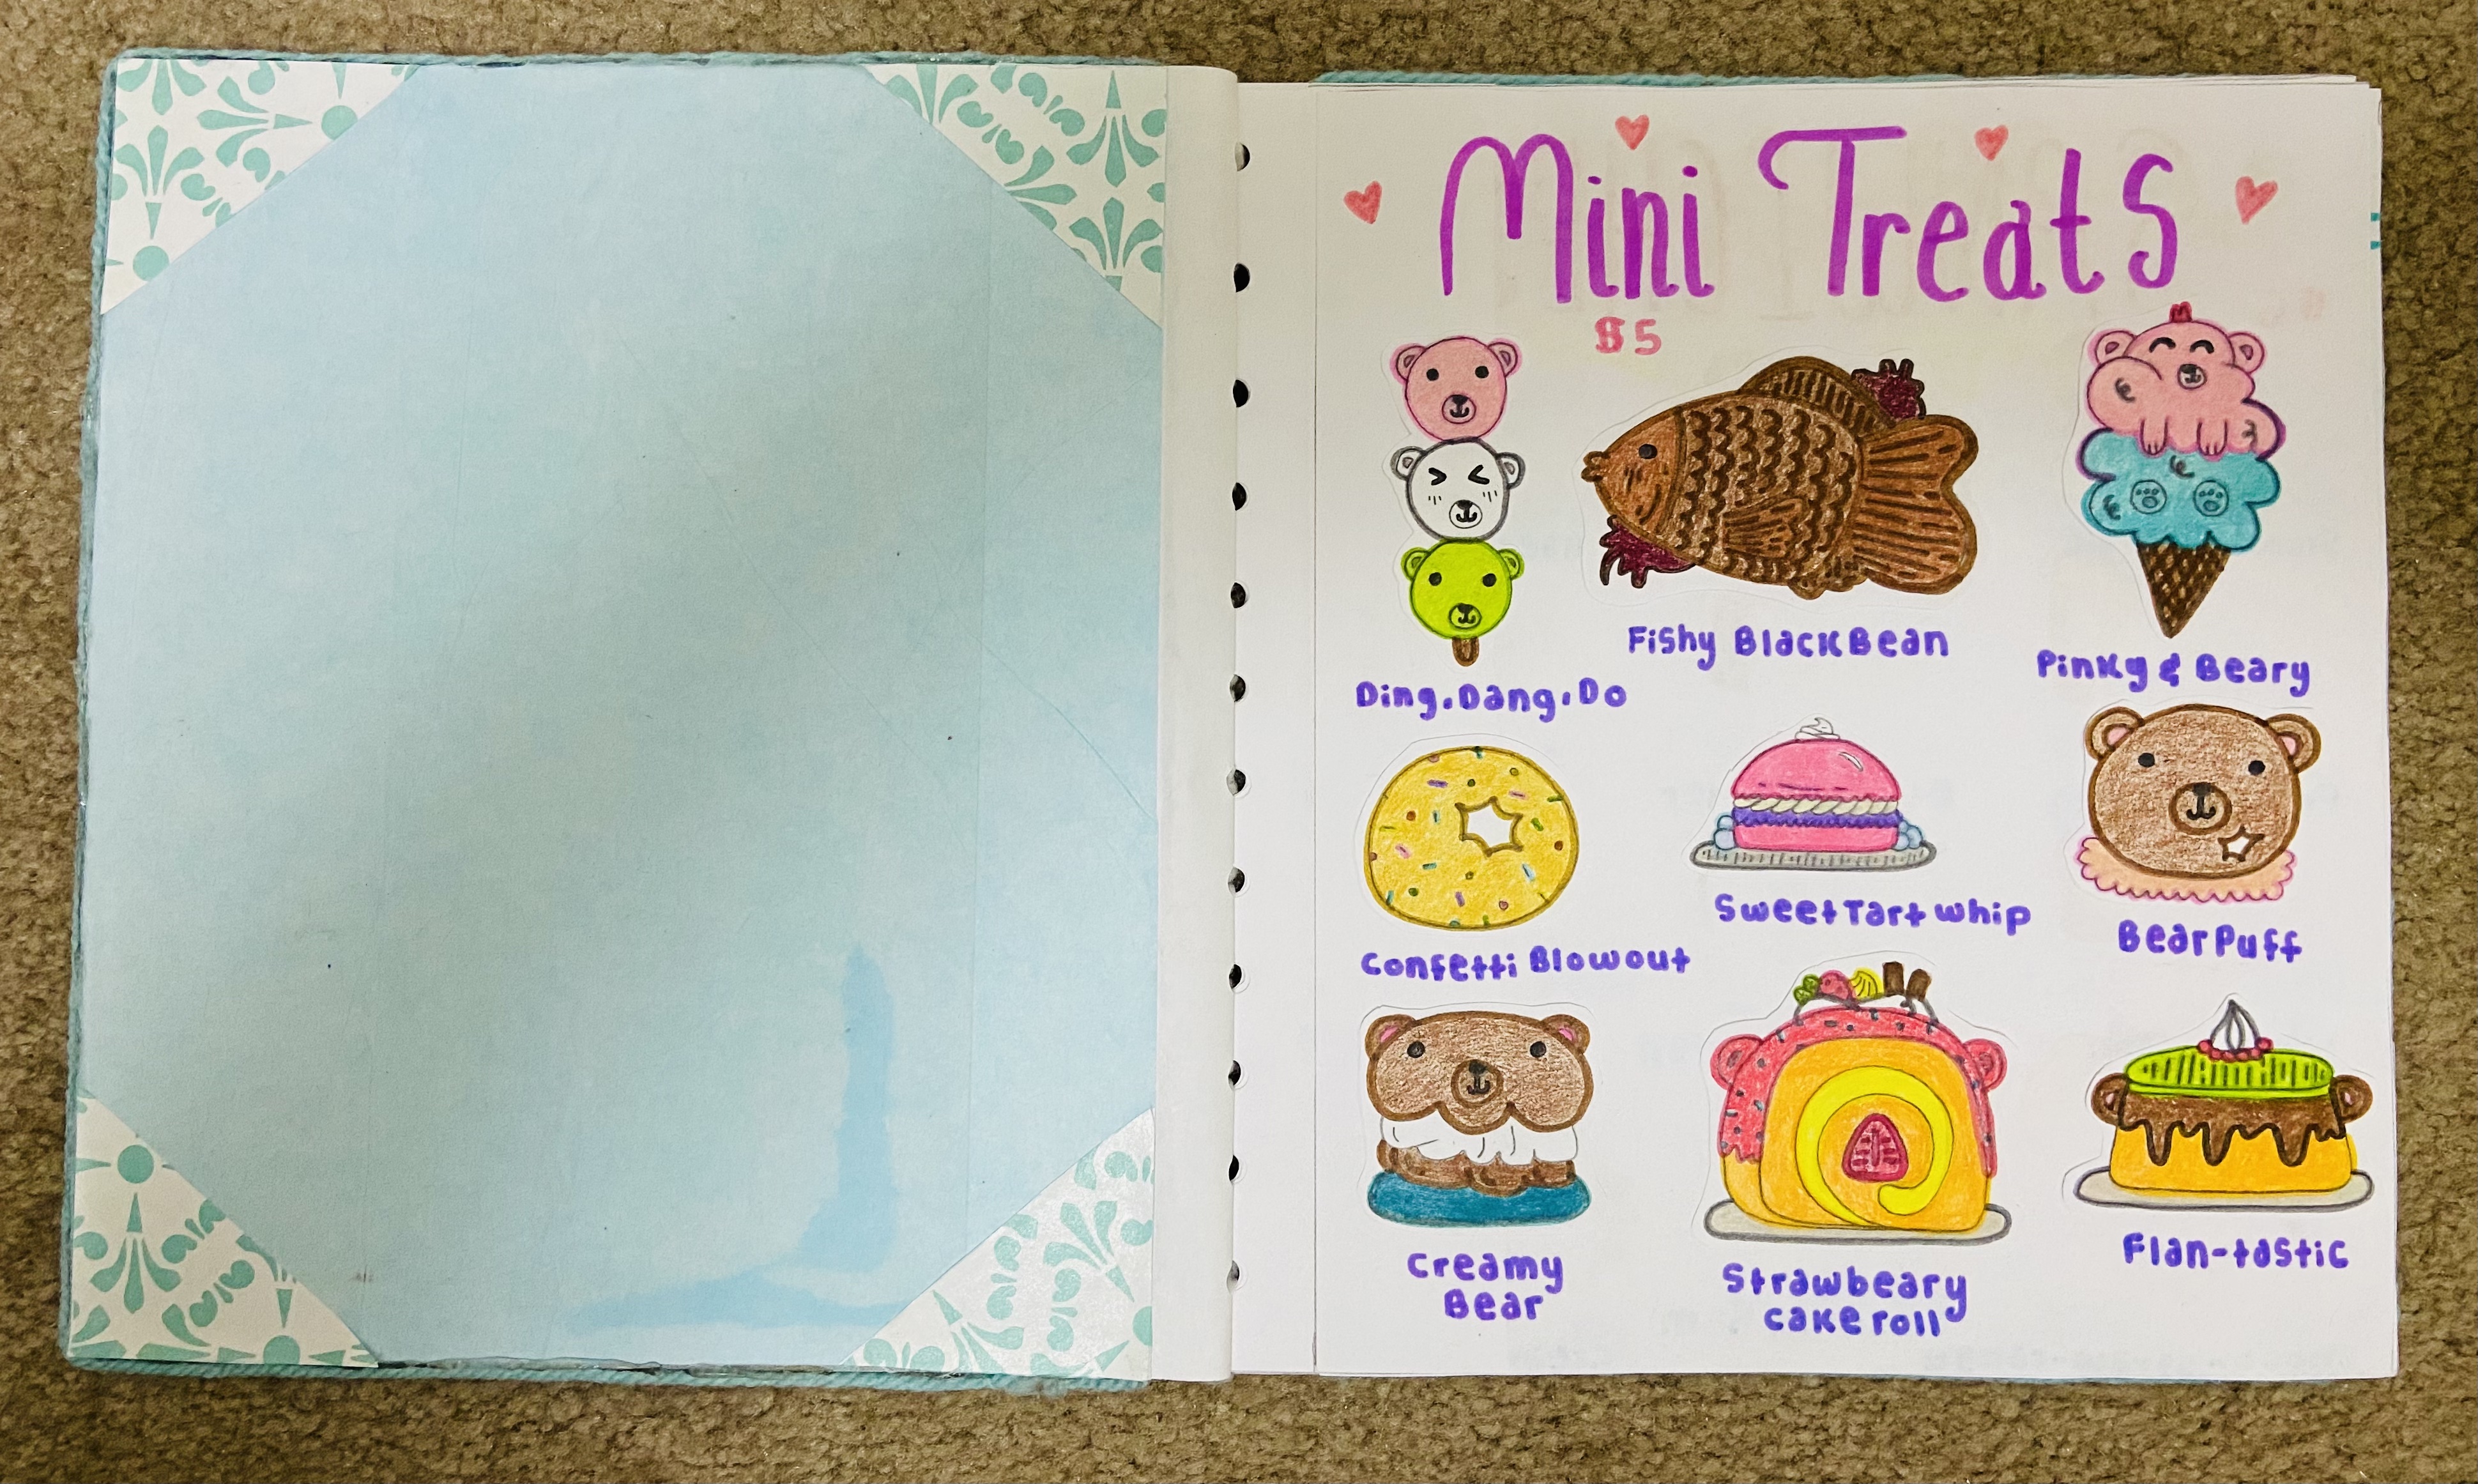 Mini Treats
$5
Ding. Dang. Do
Fishy Black Bean
Pinky & Beary
Confetti Blowout
Sweet Tart Whip
Bear Puff
Creamy
Bear
Strawbeary
cake roll
Flan-tastic